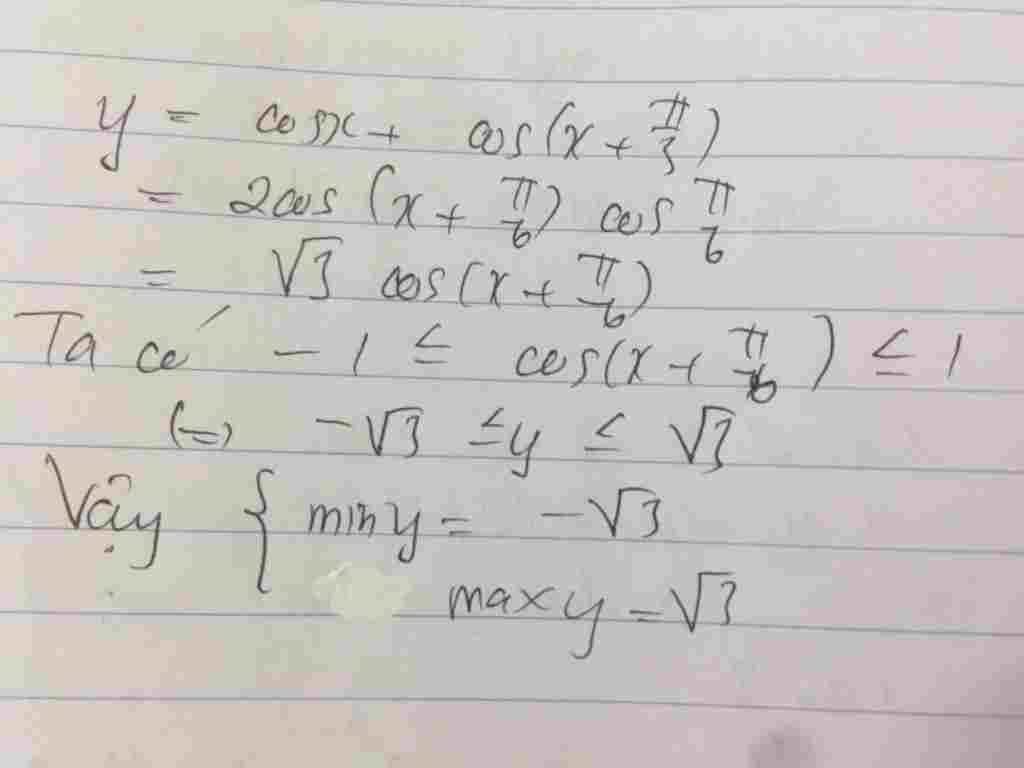 y = cosx + cos(x + π/3)
= 2cos(x + π/6) cos π/6
= √3 cos(x + π/6)
Ta có -1 ≤ cos(x + π/6) ≤ 1
(=) -√3 ≤ y ≤ √3
Vậy { min y = -√3
max y = √3